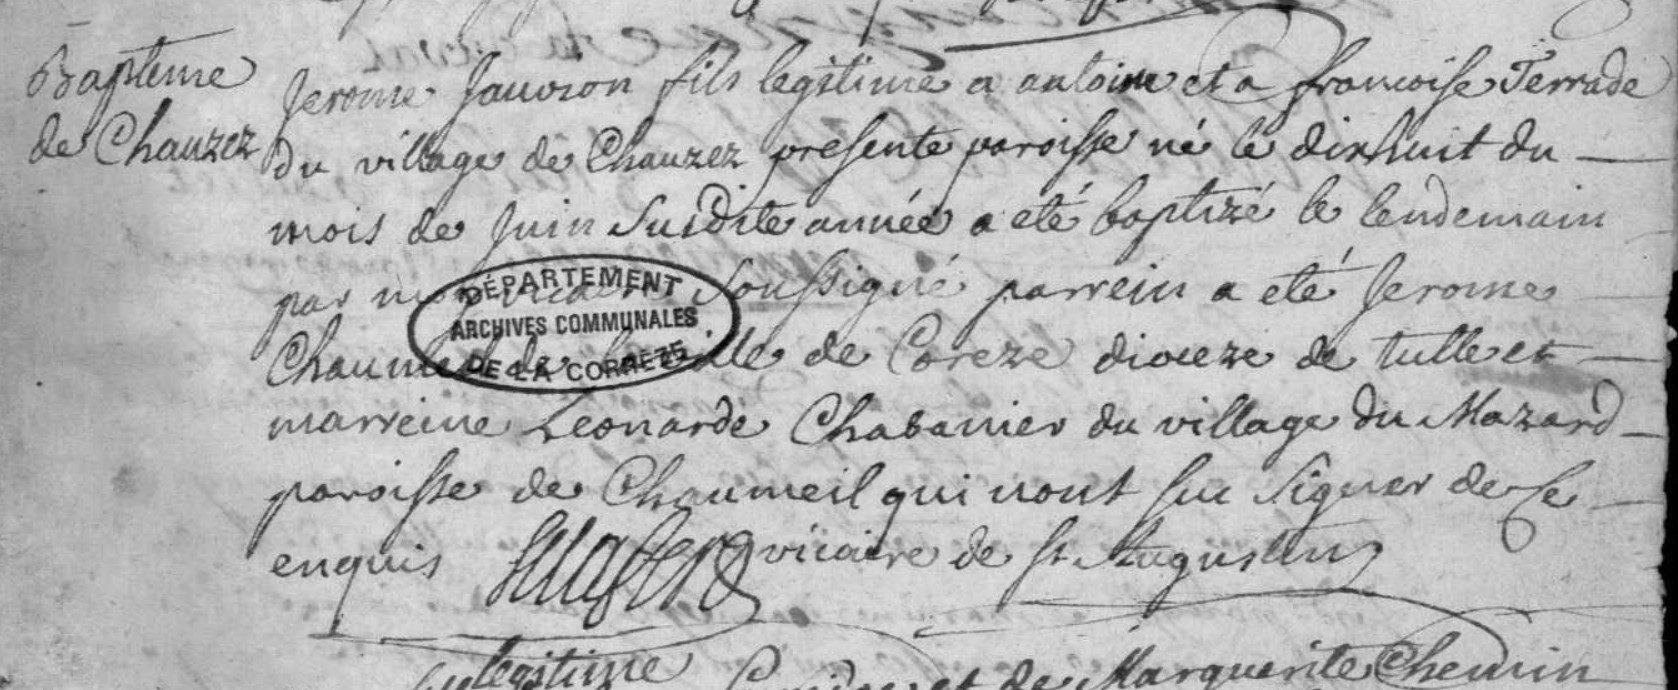 Bapteme
de Chauzez
Jerome Jauvion fils legitime a antoine et a francoise Terrade
du village de Chauzez presente paroisse né le dixhuit du
mois de Juin Susdite année a eté baptizé le lendemain
par soussigné parrein a eté Jerome
de Coreze dioceze de tulle et
marreine Leonarde Chabanier du village du Mazard
paroisse de Chaumeil qui nont sçu signer de ce
enquis vicaire de st Augustin
legitime et de Marguerite Chemin
DÉPARTEMENT
ARCHIVES COMMUNALES
DE LA CORRÈZE